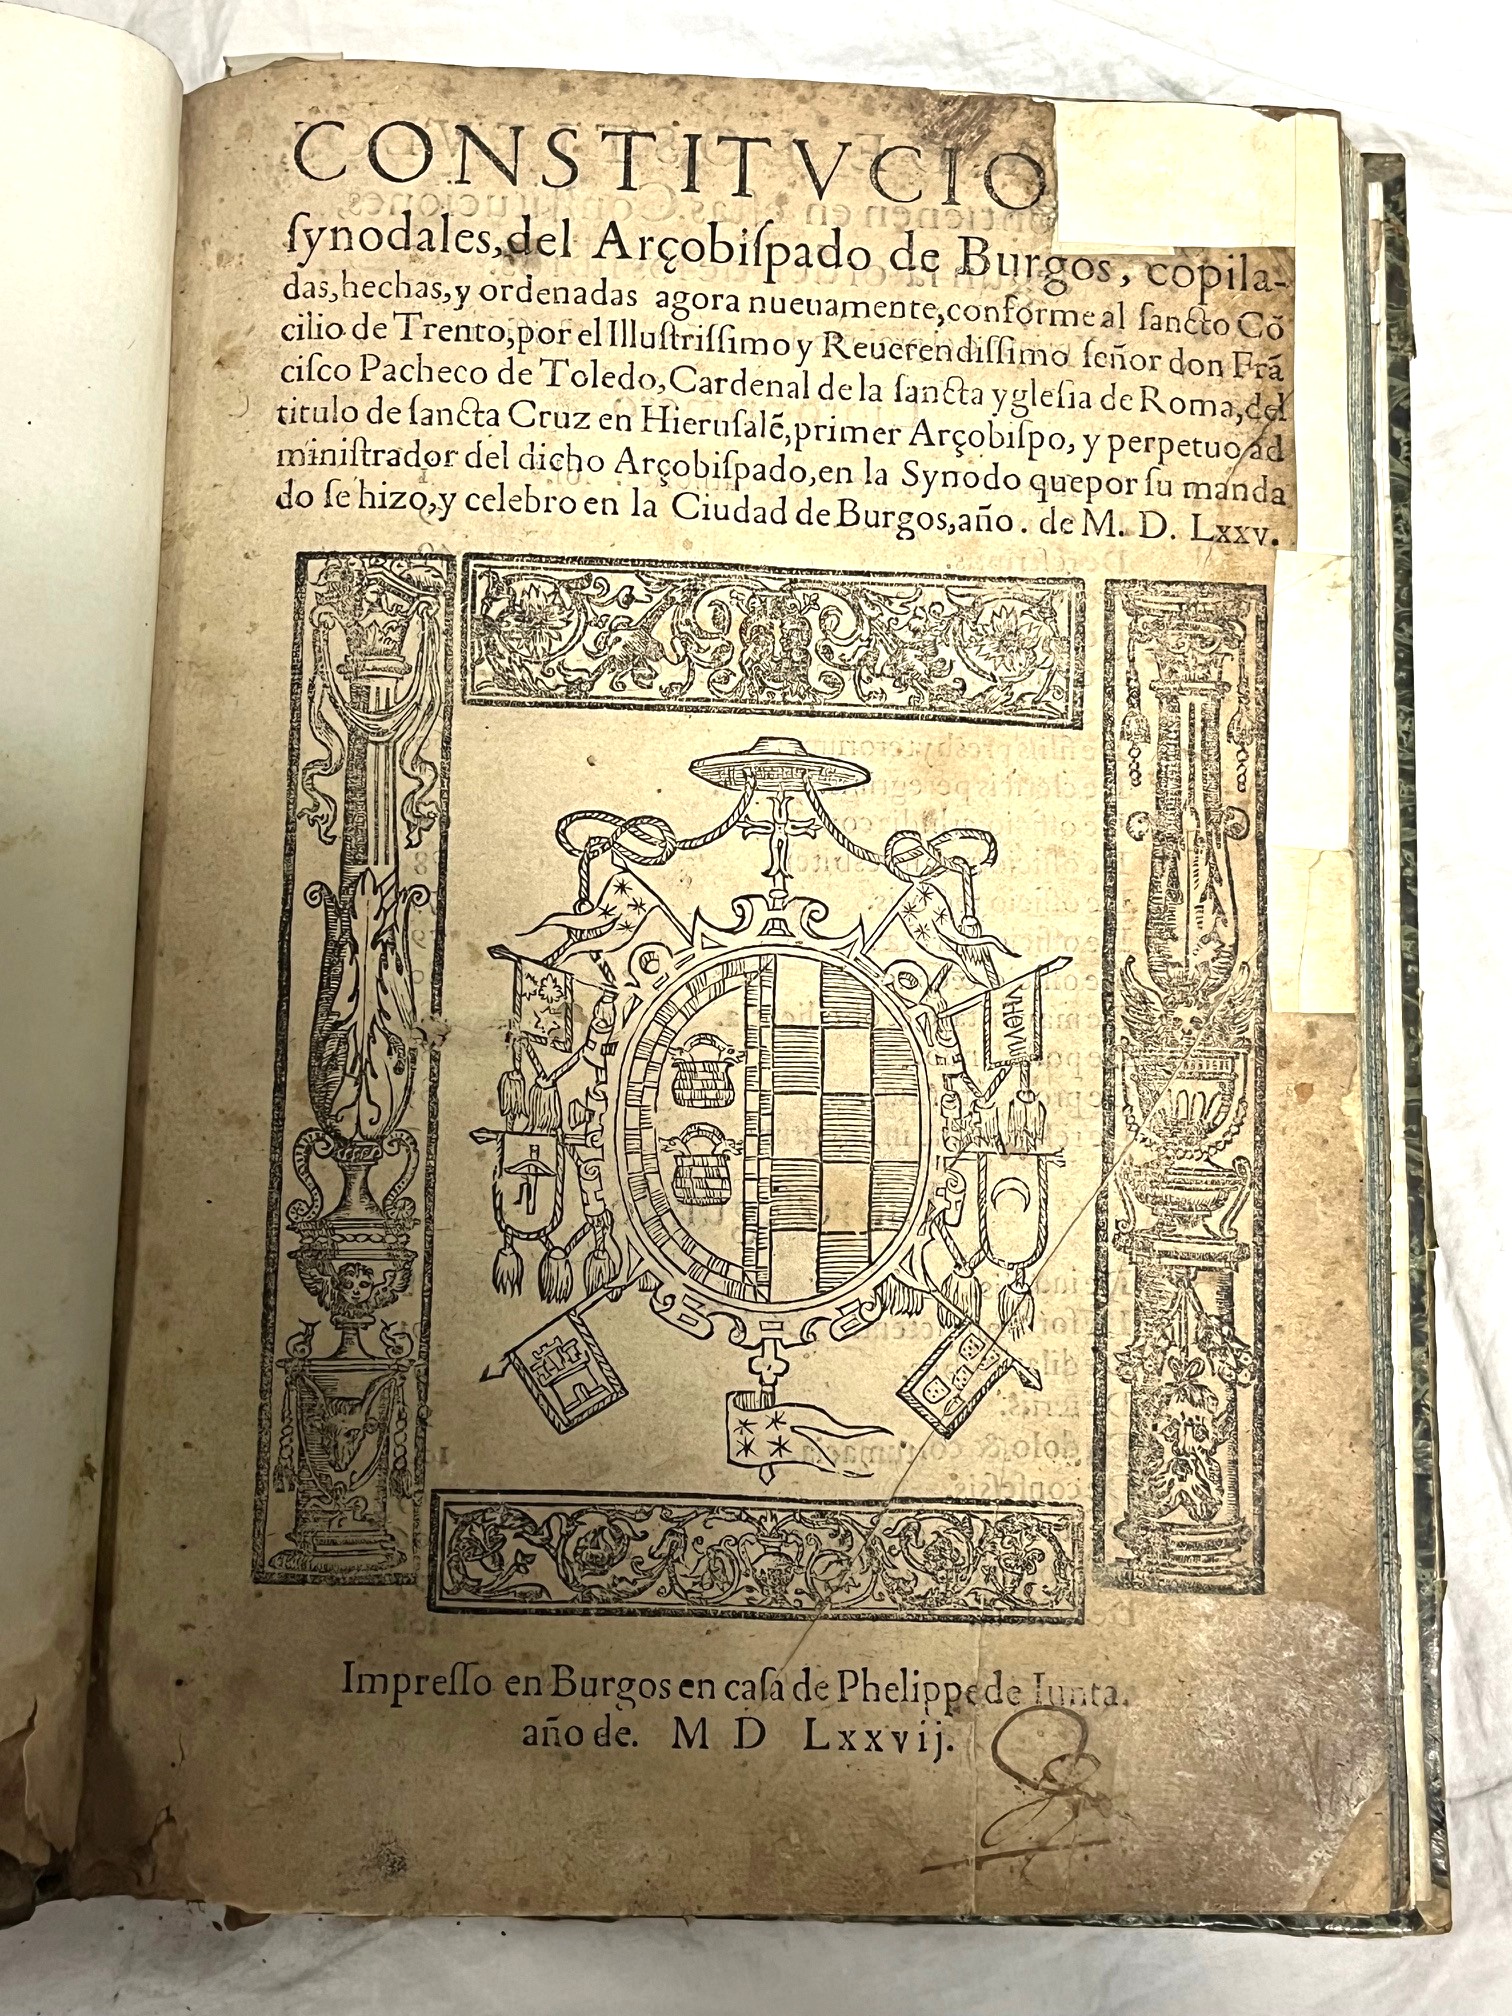 CONSTITVCIO
ſynodales, del Arçobiſpado de Burgos, copila-
das, hechas, y ordenadas agora nueuamente, conforme al ſancto Cõ
cilio de Trento, por el Illuſtriſſimo y Reuerendiſſimo ſeñor don Frã
ciſco Pacheco de Toledo, Cardenal de la ſancta ygleſia de Roma, del
titulo de ſancta Cruz en Hieruſalẽ, primer Arçobiſpo, y perpetuo ad
miniſtrador del dicho Arçobiſpado, en la Synodo que por ſu manda
do ſe hizo, y celebro en la Ciudad de Burgos, año. de M. D. Lxxv.
Impreſſo en Burgos en caſa de Phelippe de Iunta.
año de. M D Lxxvij.